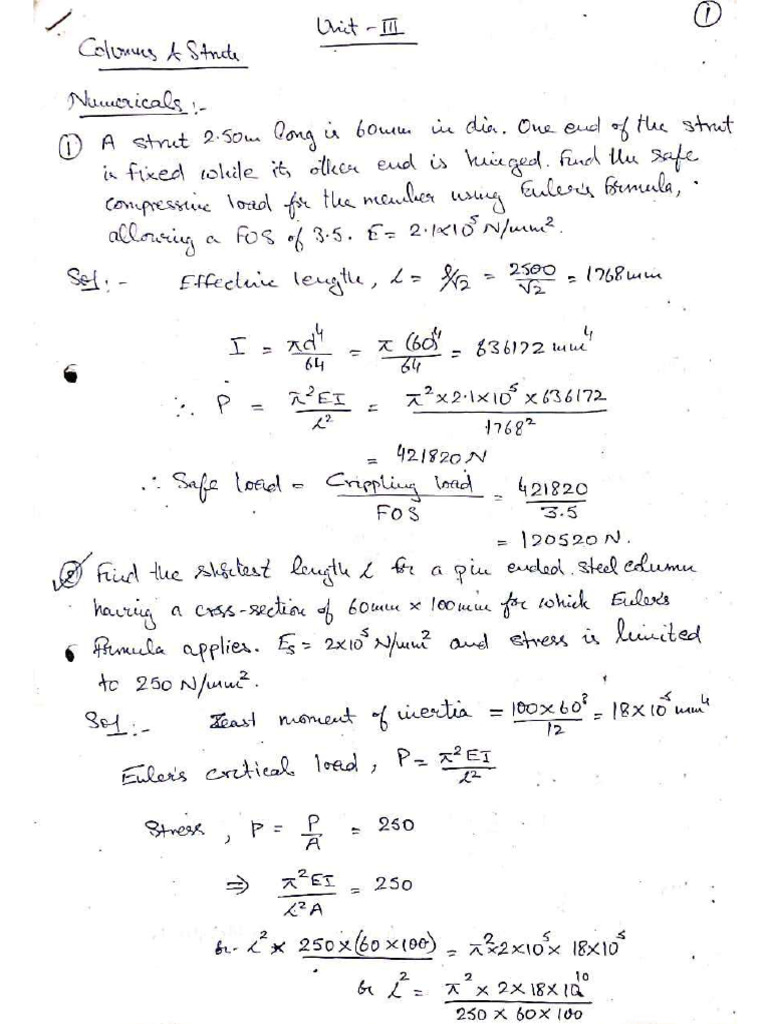 ①
Unit - III
Columns & Struts
Numericals :-
① A strut 2.50m long is 60mm in dia. One end of the strut
is fixed while its other end is hinged. Find the safe
compressive load for the member using Euler's formula,
allowing a FOS of 3.5. E = 2.1x10⁵ N/mm².
Sol :- Effective length, L = l/√2 = 2500/√2 = 1768mm
I = πd⁴/64 = π (60)⁴/64 = 636172 mm⁴
∴ P = π²EI/L² = π²x2.1x10⁵x636172/1768²
= 421820 N
∴ Safe load = Crippling load/FOS = 421820/3.5
= 120520 N.
② Find the shortest length L for a pin ended steel column
having a cross-section of 60mm x 100mm for which Euler's
formula applies. Es = 2x10⁵ N/mm² and stress is limited
to 250 N/mm².
Sol :- Least moment of inertia = 100x60³/12 = 18x10⁵ mm⁴
Euler's critical load, P = π²EI/L²
Stress, p = P/A = 250
⇒ π²EI/L²A = 250
or L² x 250x(60x100) = π²x2x10⁵x 18x10⁵
or L² = π² x 2x18x10¹⁰/250x60x100